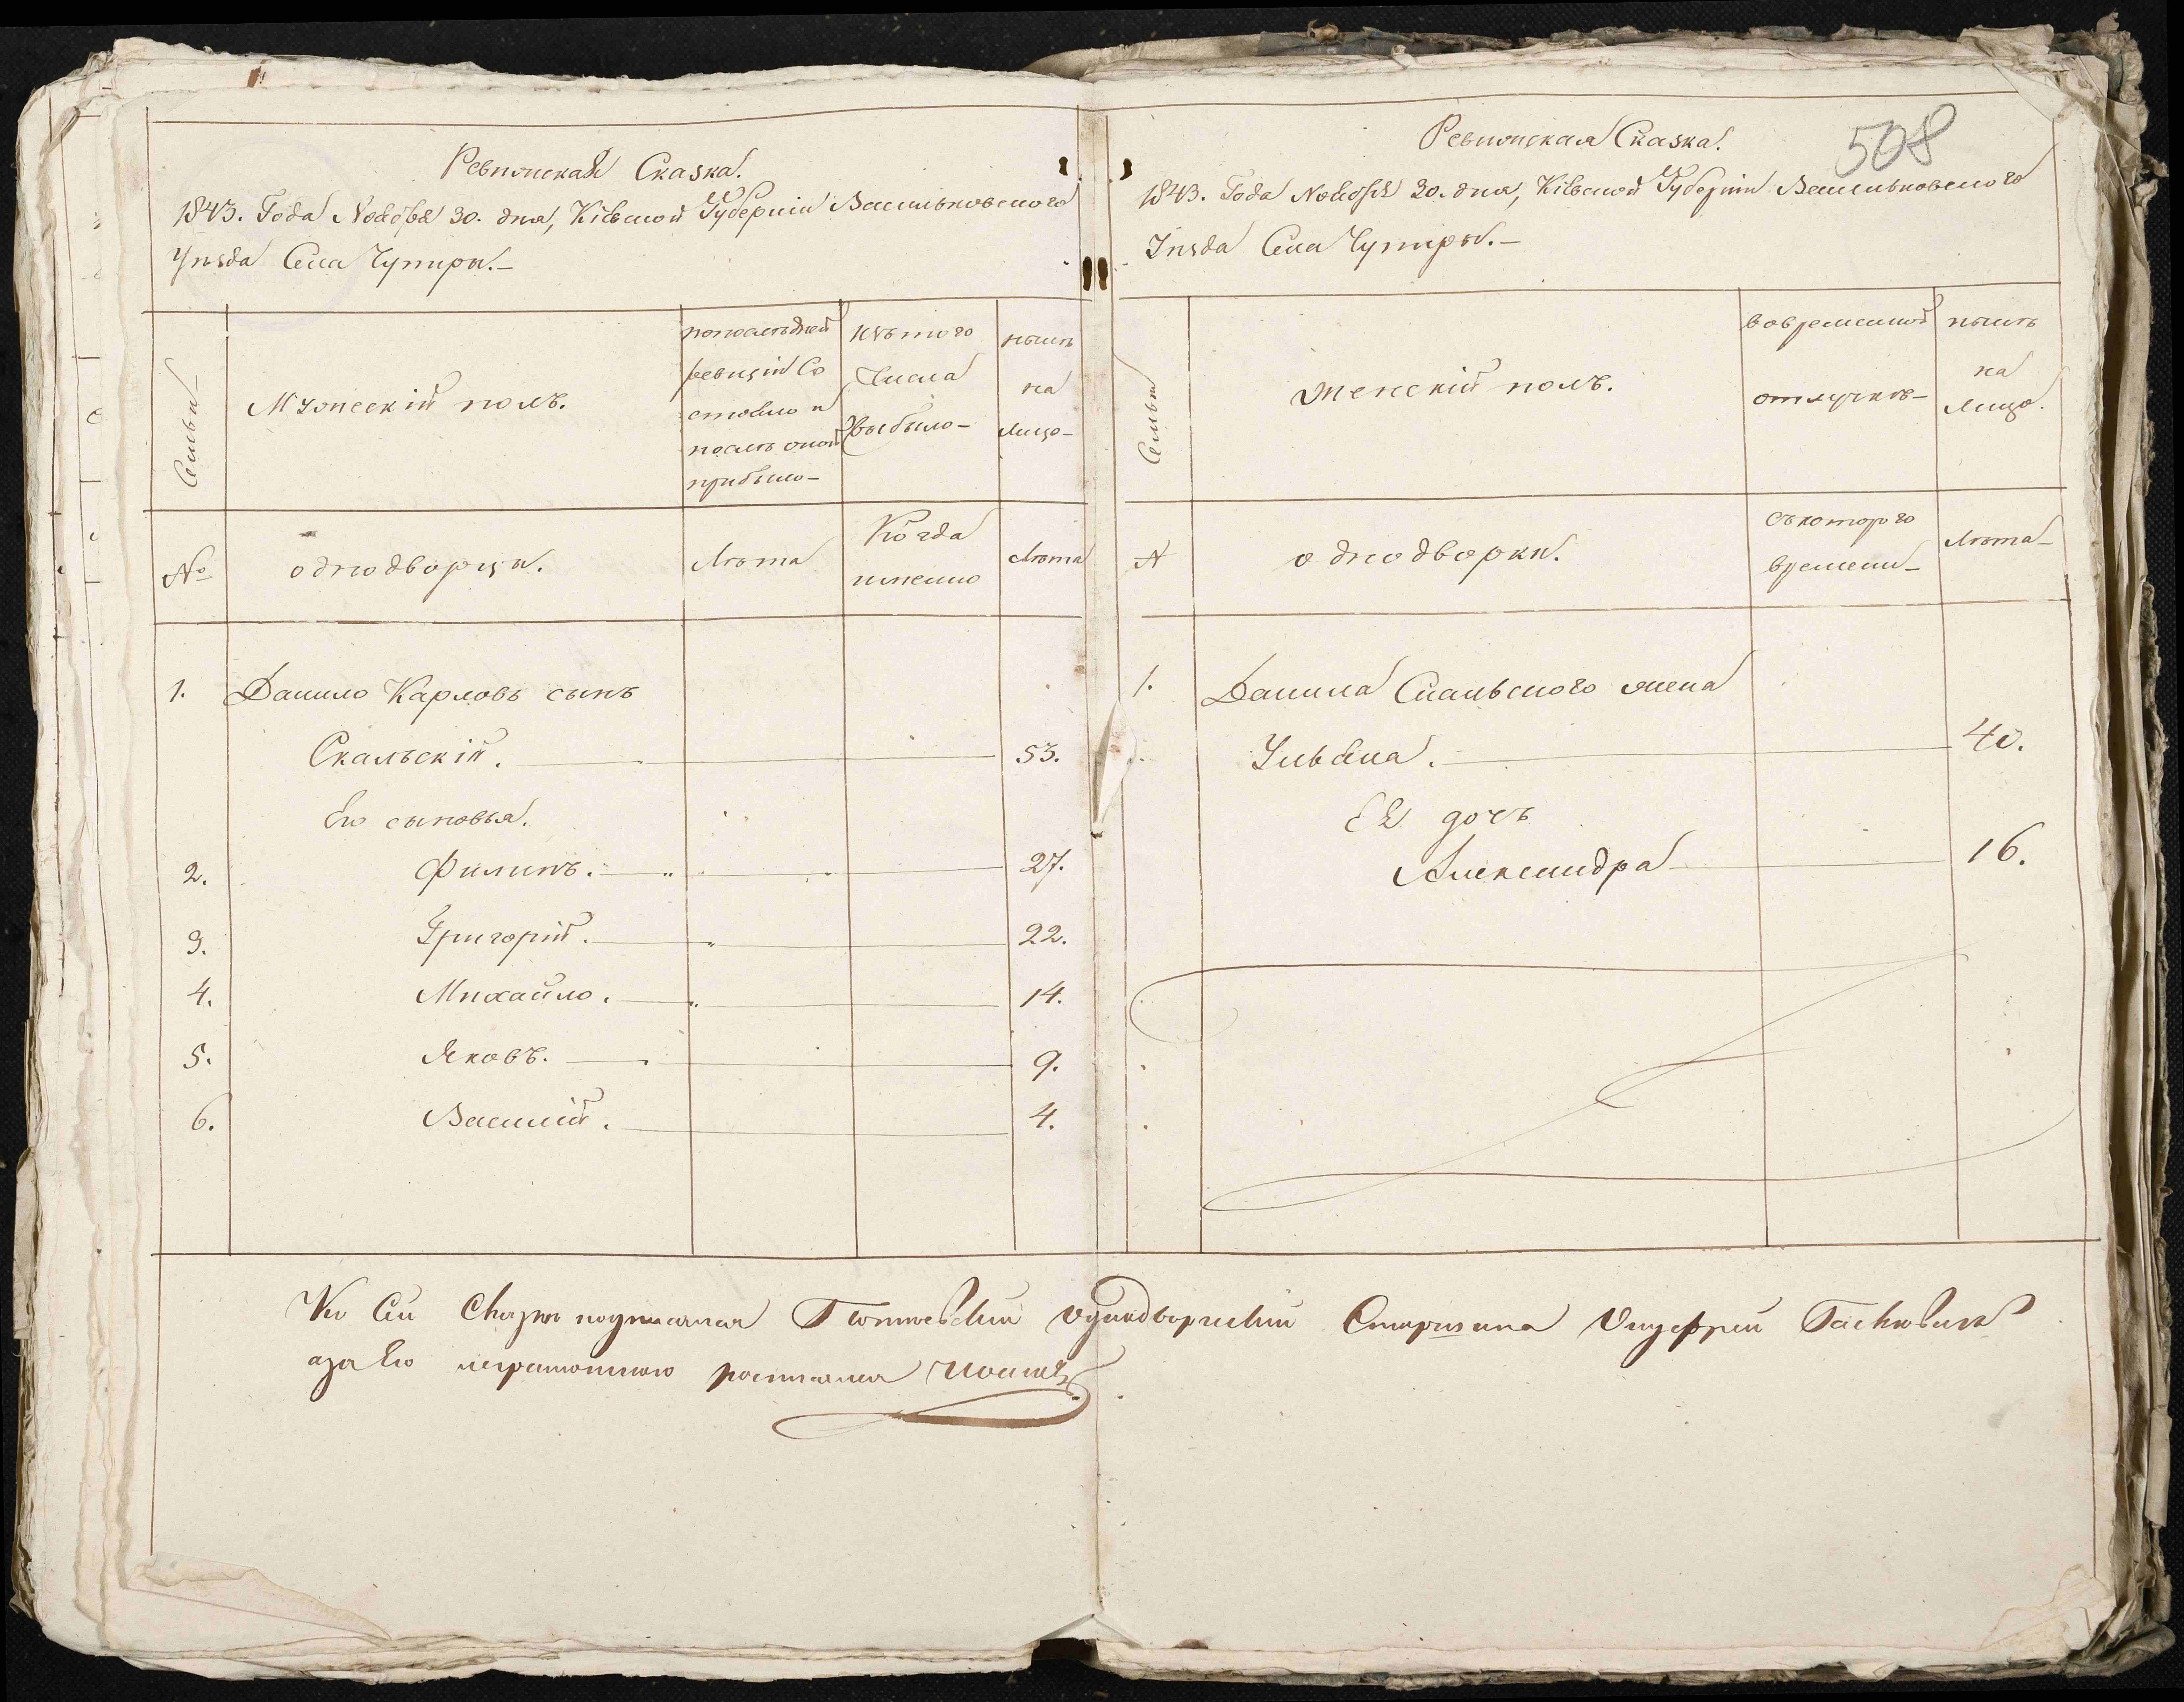 Ревизская Сказка.
1843. Года Ноября 30. дня, Кіевской Губерніи Васильковского
Уѣзда Села Чупиры.—
Семьи
Мужескій полъ.
попослѣдней
ревизіи Со
стояло и
послѣ оной
прибыло—
изъ того
Числа
выбыло—
нынѣ
на
лицо—
№
однодворцы.
Лѣта
Когда
именно
Лѣта
1. Данило Карловъ сынъ
Скальскій. 53.
Его сыновья.
2. Филипъ. 27.
3. Григорій. 22.
4. Михайло. 14.
5. Яковъ. 9.
6. Василій. 4.
508
Ревизская Сказка.
1843. Года Ноября 30. дня, Кіевской Губерніи Васильковского
Уѣзда Села Чупиры.—
Семьи
Женскій полъ.
вовременной
отлучкѣ—
нынѣ
на
лицо.
№
однодворки.
съкоторого
времени—
Лѣта—
1. Данила Скальского жена
Ульяна. 40.
Ея дочь
Александра 16.
Ко Сей Сказки подписался однодворческий Старшина Онуфрей
азаего неграмотного росписался